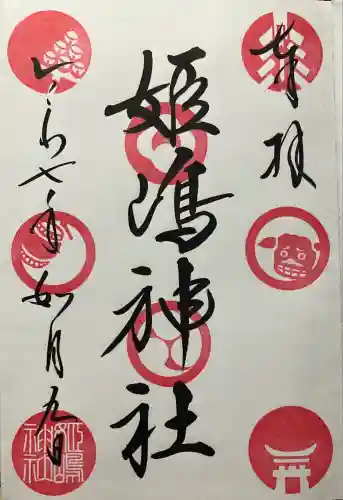 奉拝
姫嶋神社
令和七年如月九日
姫嶋
神社